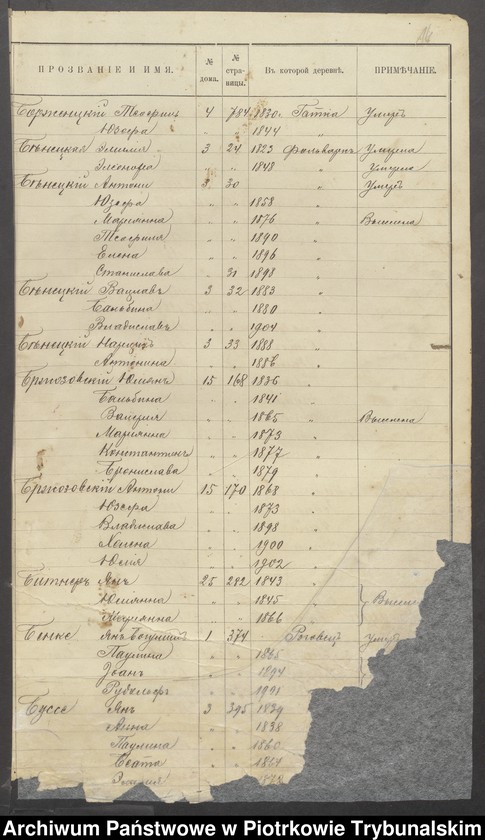 ПРОЗВАНІЕ И ИМЯ. № дома. № страницы. Въ которой деревнѣ. ПРИМѢЧАНІЕ.
Теофилъ 4 784 1830 Гатка Умеръ
Юзефа " " 1844 "
Эмилія 3 24 1823 Фольваркъ Умерла
Элеонора " " 1848 " Умерла
Антони 3 30 " Умеръ
Юзефа " " 1858 "
Маріянна " " 1876 " Вышла
Теофиля " " 1890 "
Елена " " 1896 "
Станислава " 31 1898 "
Вацлавъ 3 32 1883 "
Бальбина " " 1880 "
Владиславъ " " 1904 "
3 33 1888 "
Антонина " " 1886 "
Бржозовскій Юліянъ 15 168 1836 "
Бальбина " " 1841 "
" " 1865 "
Маріянна " " 1873 "
Константинъ " " 1877 "
Бронислава " " 1879 "
Бржозовскій Антони 15 170 1868 "
Юзефа " " 1873 "
Владислава " " 1898 "
Хелена " " 1900 "
Юлія " " 1902 "
Битнеръ Янъ 25 292 1843 "
Юліянна " " 1845 "
Маріянна " " 1866 "
Бенке Янъ Богумилъ 1 374 Роговец
Паулина " " 1865
Іоанъ " " 1894
Рудольфъ " " 1901
Буссе Янъ 3 395 1839
Анна " " 1838
Паулина " " 1860
Беата " " 1864
Archiwum Państwowe w Piotrkowie Trybunalskim